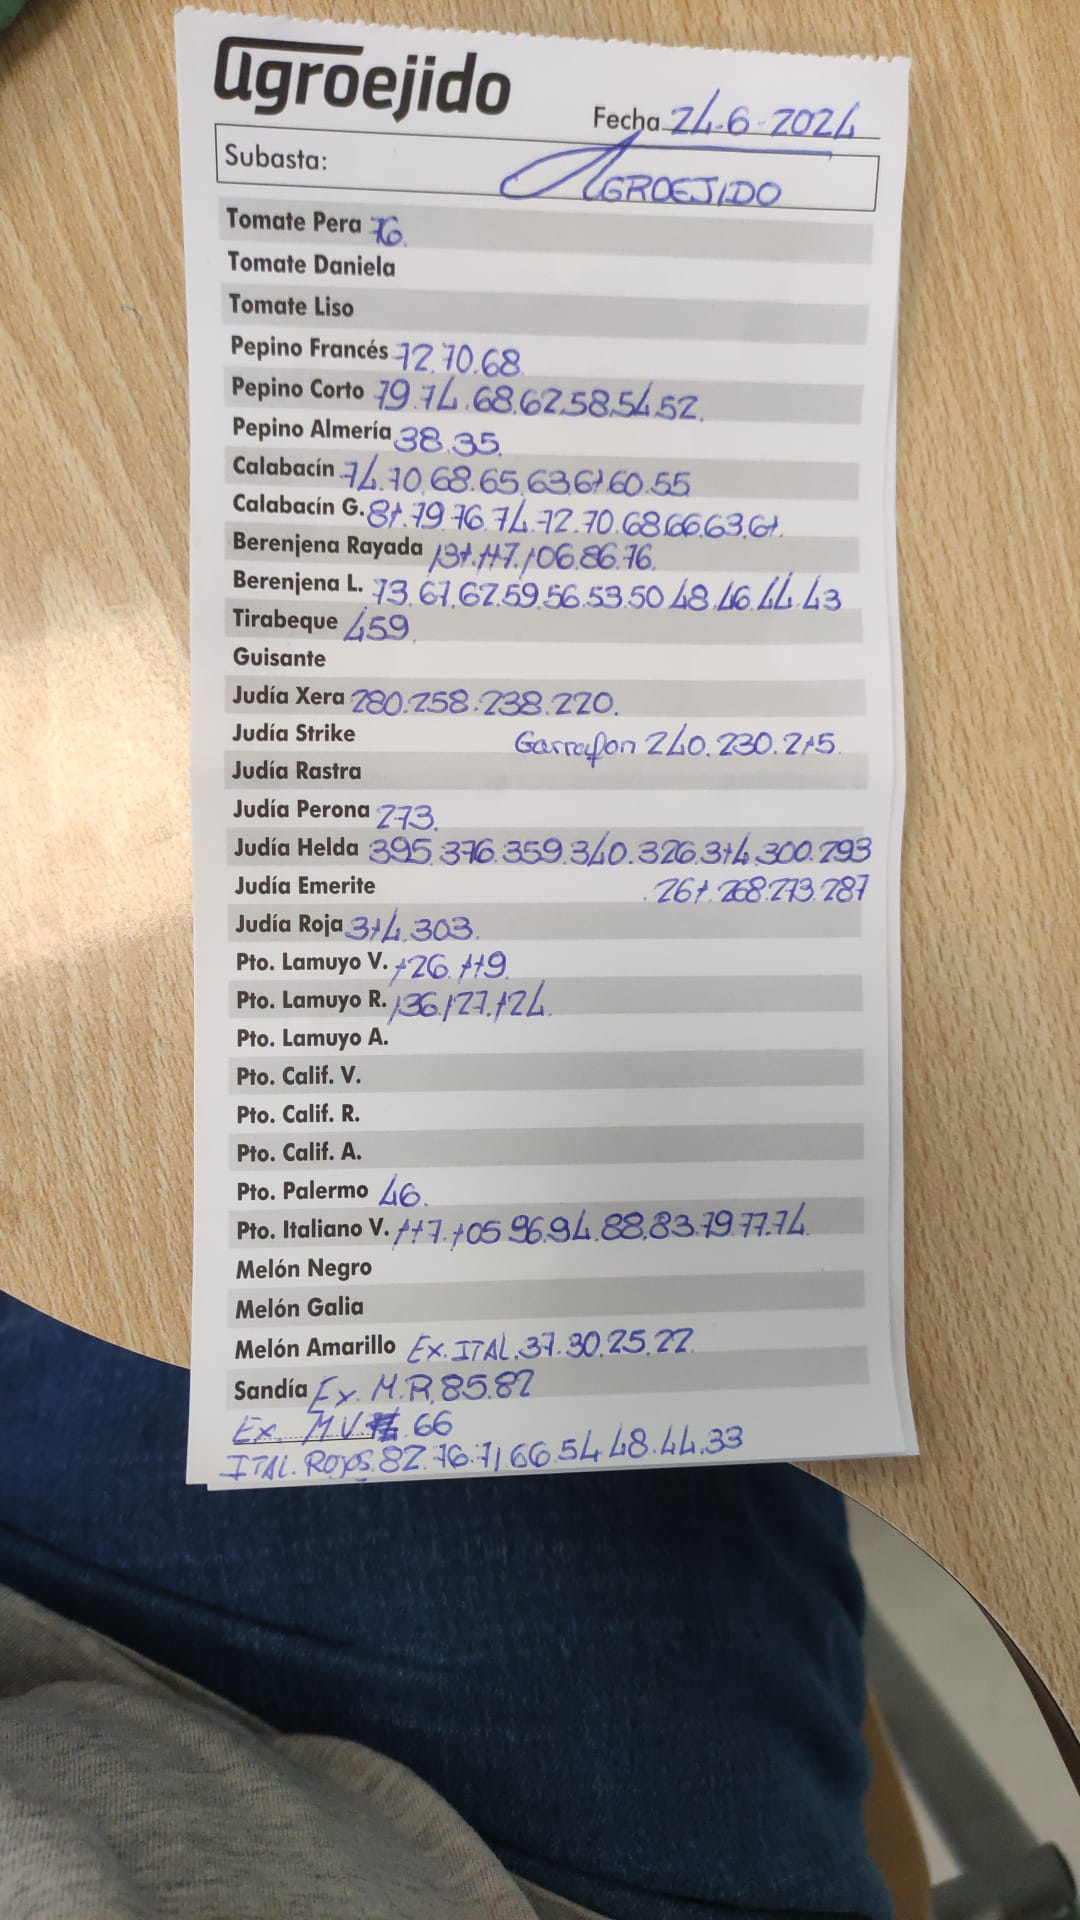 agroejido
Fecha 24-6-2024
Subasta: AGROEJIDO
Tomate Pera 76.
Tomate Daniela
Tomate Liso
Pepino Francés 72.70.68.
Pepino Corto 79.74.68.62.58.54.52.
Pepino Almería 38.35.
Calabacín 74.70.68.65.63.61.60.55
Calabacín G. 81.79.76.74.72.70.68.66.63.61.
Berenjena Rayada 131.117.106.86.76.
Berenjena L. 73.67.62.59.56.53.50.48.46.44.43
Tirabeque 459.
Guisante
Judía Xera 280.258.238.220.
Judía Strike Garrafon 240.230.215.
Judía Rastra
Judía Perona 273.
Judía Helda 395.376.359.340.326.314.300.293
Judía Emerite .261.268.273.287
Judía Roja 314.303.
Pto. Lamuyo V. 126.119.
Pto. Lamuyo R. 136.127.124.
Pto. Lamuyo A.
Pto. Calif. V.
Pto. Calif. R.
Pto. Calif. A.
Pto. Palermo 46.
Pto. Italiano V. 117.105.96.94.88.83.79.77.74.
Melón Negro
Melón Galia
Melón Amarillo Ex. ITAL.37.30.25.22.
Sandía Ex. M.R.85.82
Ex. M.V. .66
ITAL. ROJOS.82.76.71.66.54.48.44.33